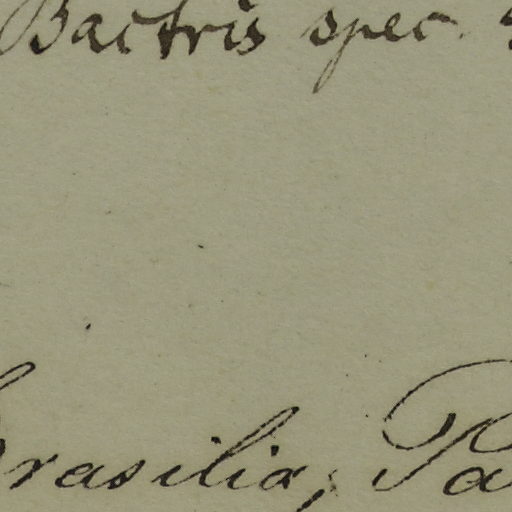 Bactris spec.
Brasilia, Pa